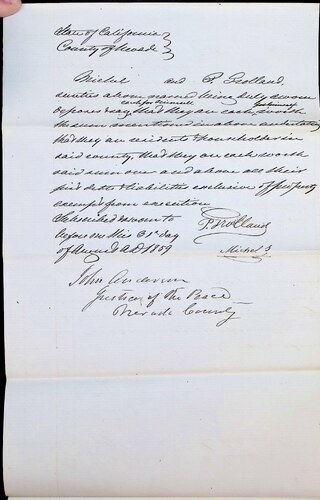 State of California }
County of Nevada }
Michel and P. Rolland
sureties above named being duly sworn
each for himself
depose & say that they are each worth
the sum
that they are residents & householders in
said county. that they are each worth
said sum over and above all their
just debts & liabilities exclusive of property
exempt from execution
Subscribed & sworn to
before me this 31st day
P. Rolland
of August A.D. 1859
Michel
John Anderson
Justice of the Peace
Nevada County